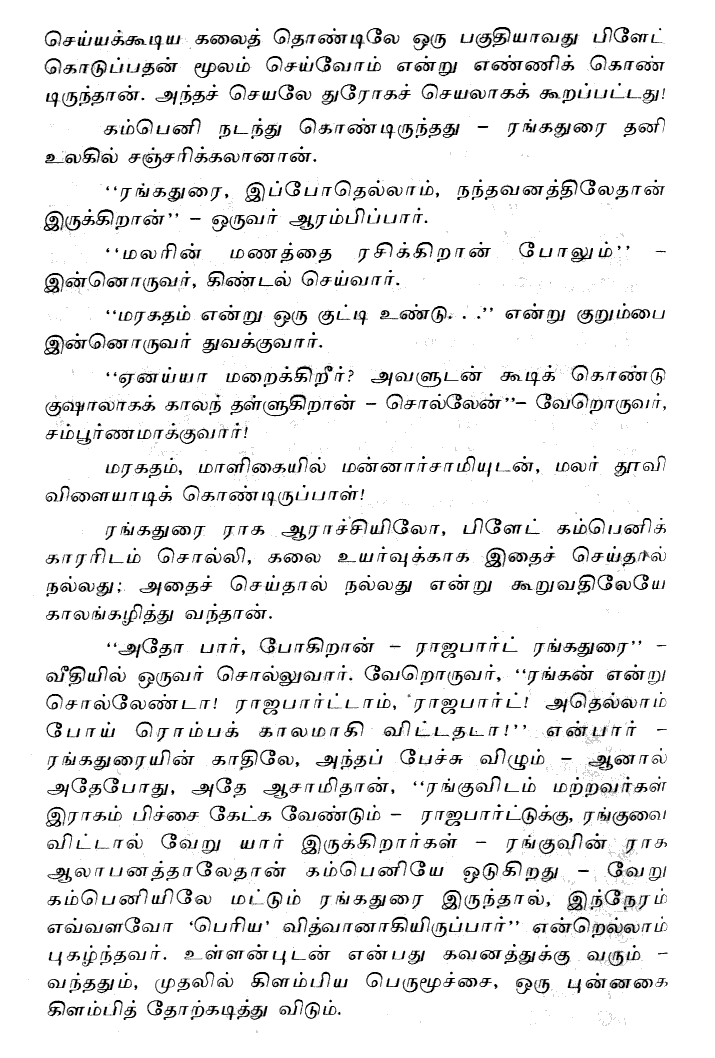 செய்யக்கூடிய கலைத் தொண்டிலே ஒரு பகுதியாவது பிளேட்
கொடுப்பதன் மூலம் செய்வோம் என்று எண்ணிக் கொண்
டிருந்தான். அந்தச் செயலே துரோகச் செயலாகக் கூறப்பட்டது!
கம்பெனி நடந்து கொண்டிருந்தது – ரங்கதுரை தனி
உலகில் சஞ்சரிக்கலானான்.
‘‘ரங்கதுரை, இப்போதெல்லாம், நந்தவனத்திலேதான்
இருக்கிறான்’’ – ஒருவர் ஆரம்பிப்பார்.
‘‘மலரின் மணத்தை ரசிக்கிறான் போலும்’’ –
இன்னொருவர், கிண்டல் செய்வார்.
‘‘மரகதம் என்று ஒரு குட்டி உண்டு. . .’’ என்று குறும்பை
இன்னொருவர் துவக்குவார்.
‘‘ஏனய்யா மறைக்கிறீர்? அவளுடன் கூடிக் கொண்டு
குஷாலாகக் காலந் தள்ளுகிறான் – சொல்லேன்’’– வேறொருவர்,
சம்பூர்ணமாக்குவார்!
மரகதம், மாளிகையில் மன்னார்சாமியுடன், மலர் தூவி
விளையாடிக் கொண்டிருப்பாள்!
ரங்கதுரை ராக ஆராச்சியிலோ, பிளேட் கம்பெனிக்
காரரிடம் சொல்லி, கலை உயர்வுக்காக இதைச் செய்தால்
நல்லது; அதைச் செய்தால் நல்லது என்று கூறுவதிலேயே
காலங்கழித்து வந்தான்.
‘‘அதோ பார், போகிறான் – ராஜபார்ட் ரங்கதுரை’’ –
வீதியில் ஒருவர் சொல்லுவார். வேறொருவர், ‘‘ரங்கன் என்று
சொல்லேண்டா! ராஜபார்ட்டாம், ‘ராஜபார்ட்! அதெல்லாம்
போய் ரொம்பக் காலமாகி விட்டதடா!’’ என்பார் –
ரங்கதுரையின் காதிலே, அந்தப் பேச்சு விழும் – ஆனால்
அதேபோது, அதே ஆசாமிதான், ‘‘ரங்குவிடம் மற்றவர்கள்
இராகம் பிச்சை கேட்க வேண்டும் – ராஜபார்ட்டுக்கு, ரங்குவை
விட்டால் வேறு யார் இருக்கிறார்கள் – ரங்குவின் ராக
ஆலாபனத்தாலேதான் கம்பெனியே ஓடுகிறது – வேறு
கம்பெனியிலே மட்டும் ரங்கதுரை இருந்தால், இந்நேரம்
எவ்வளவோ ‘பெரிய’ வித்வானாகியிருப்பார்’’ என்றெல்லாம்
புகழ்ந்தவர். உள்ளன்புடன் என்பது கவனத்துக்கு வரும் –
வந்ததும், முதலில் கிளம்பிய பெருமூச்சை, ஒரு புன்னகை
கிளம்பித் தோற்கடித்து விடும்.